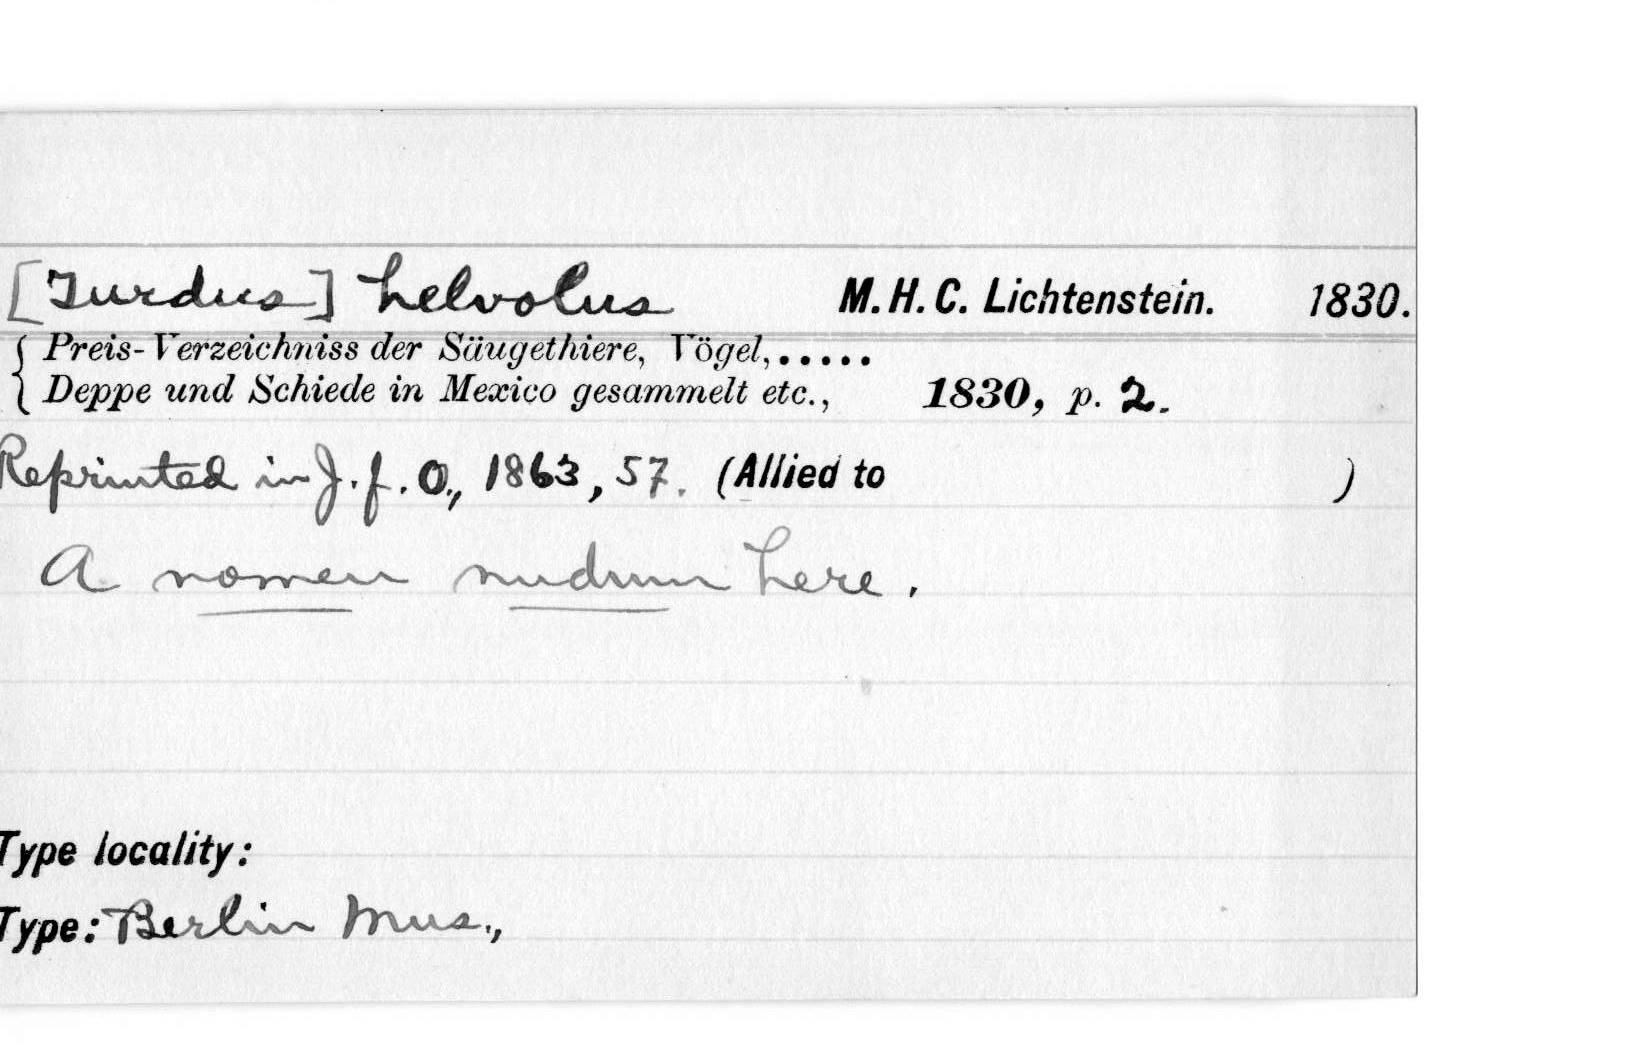 [Turdus] helvolus M. H. C. Lichtenstein. 1830.
{ Preis-Verzeichniss der Säugethiere, Vögel,.....
{ Deppe und Schiede in Mexico gesammelt etc., 1830, p. 2.
Reprinted in J. f. O., 1863, 57. (Allied to )
A nomen nudum here.
Type locality:
Type: Berlin Mus.,